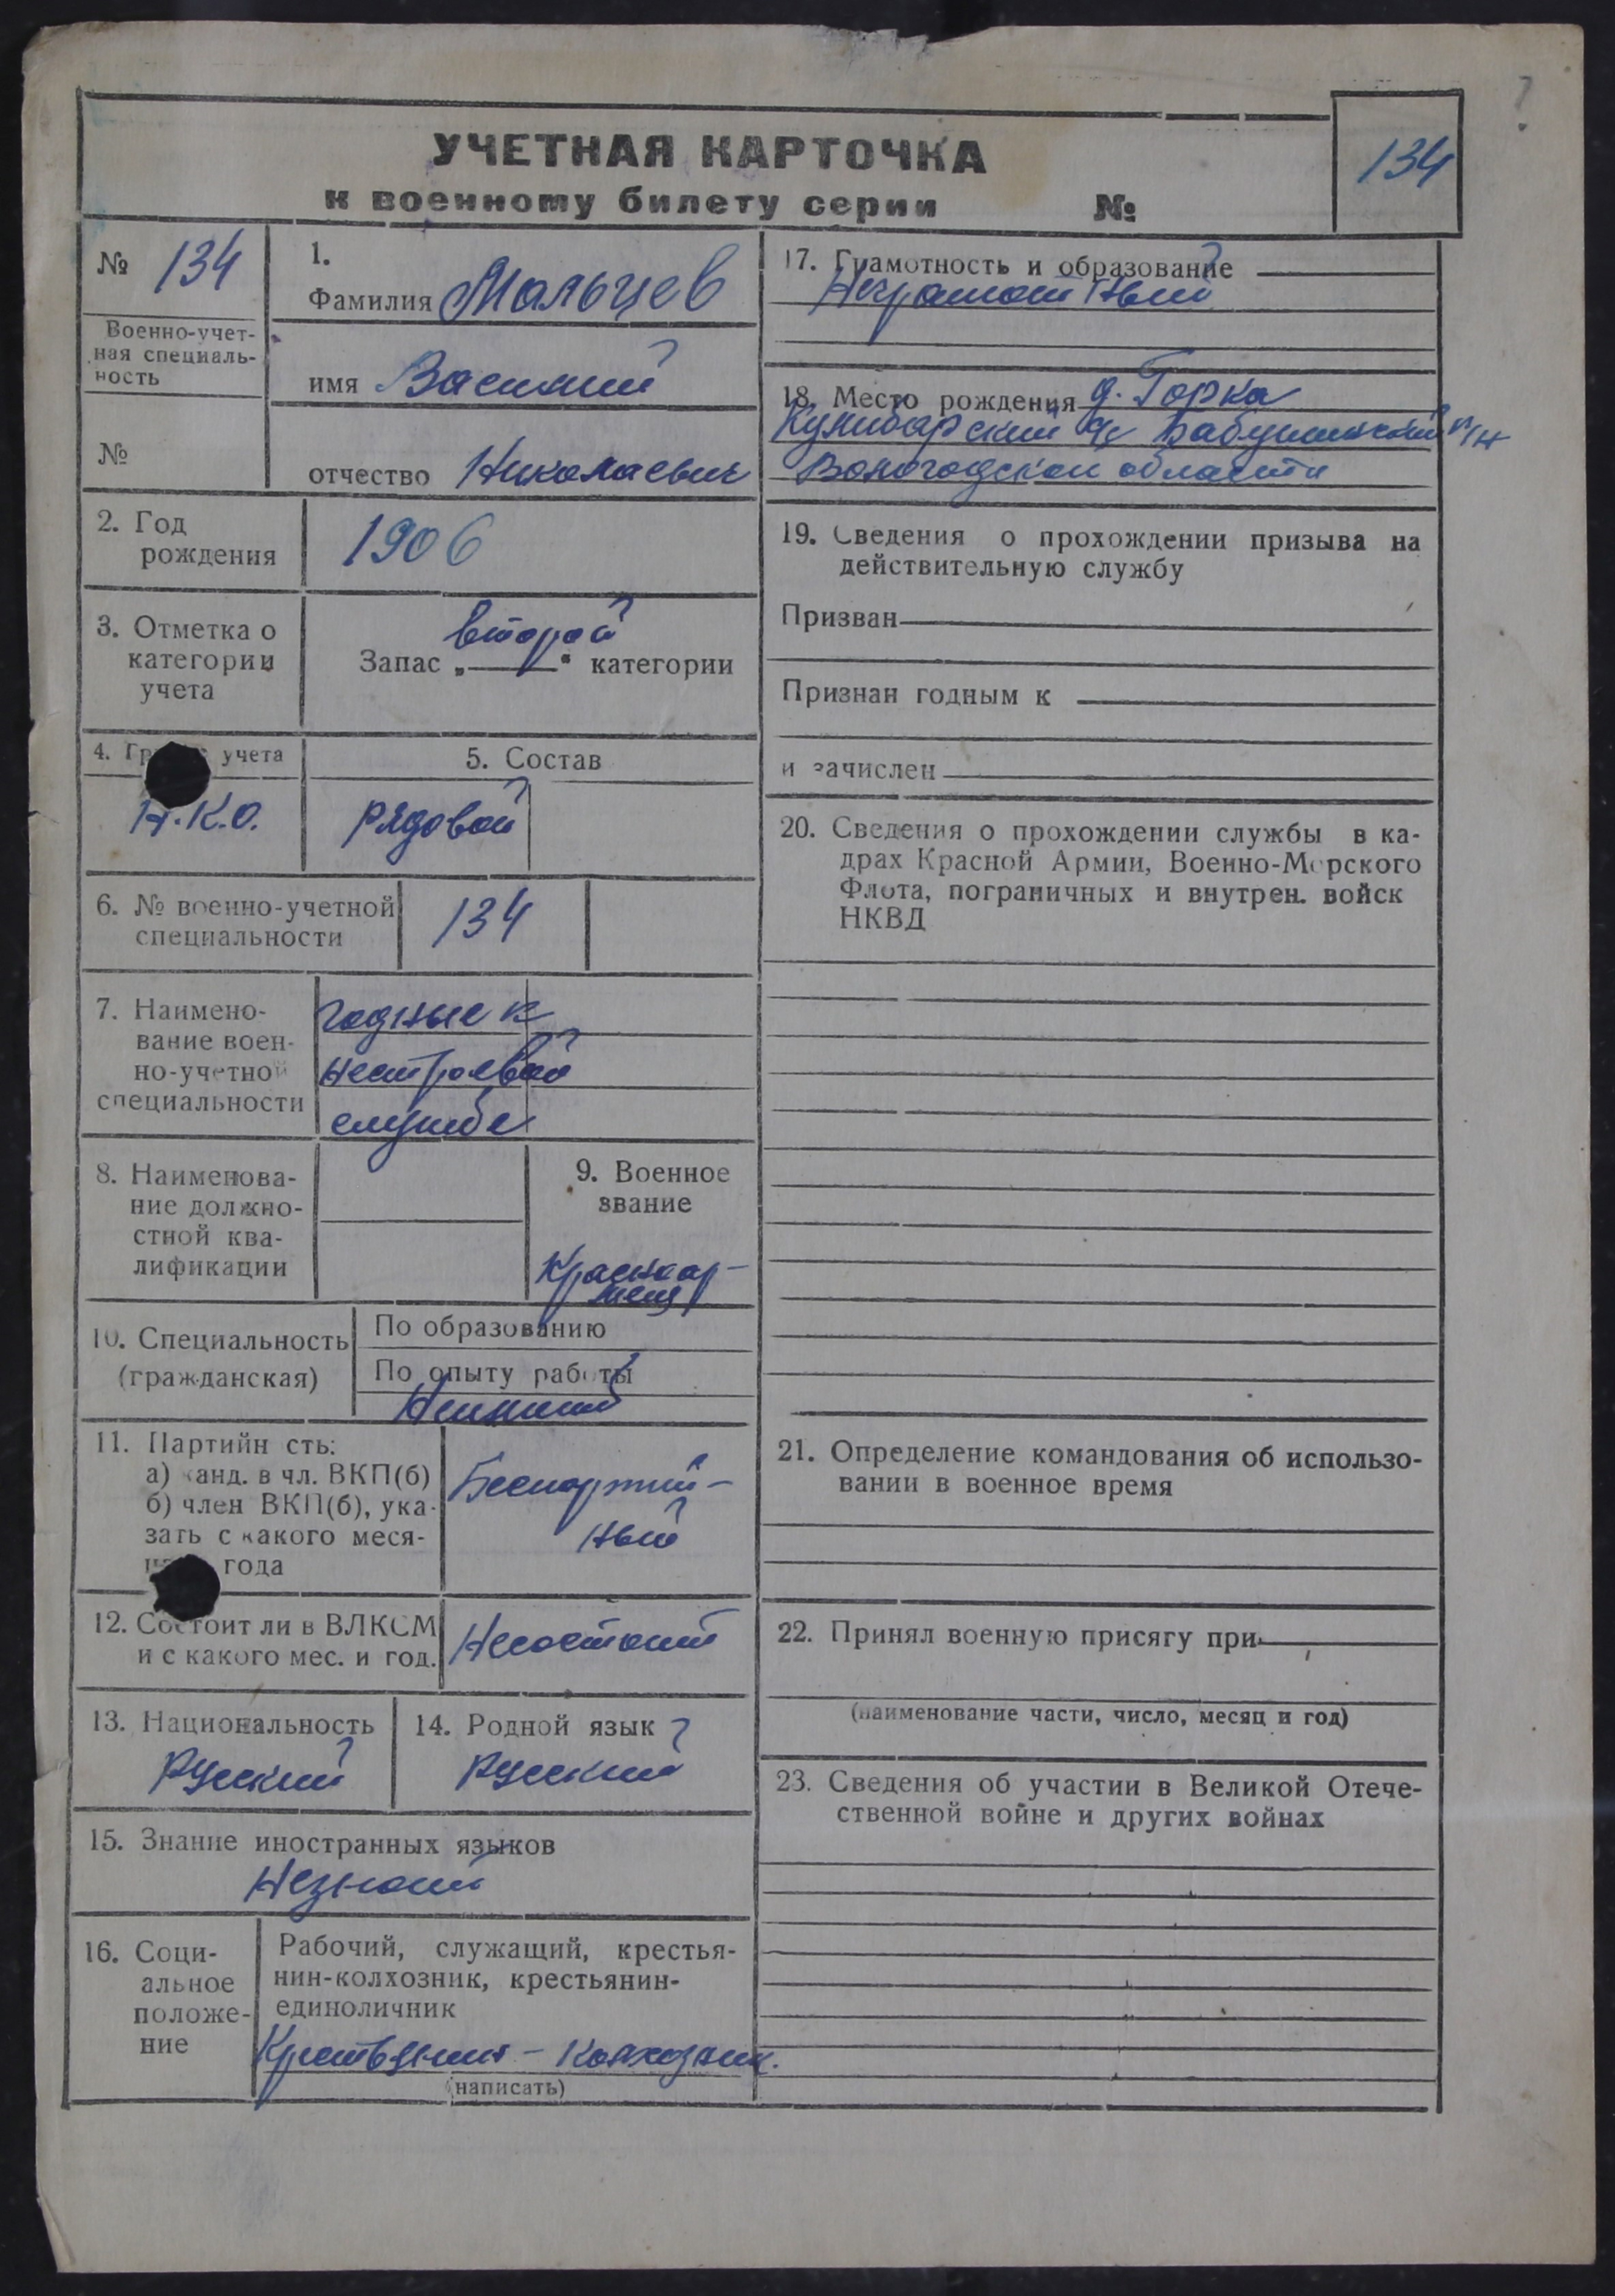 УЧЕТНАЯ КАРТОЧКА
к военному билету серии №
134
№ 134
Военно-учет-
ная специаль-
ность
№
1.
Фамилия Мальцев
имя Василий
отчество Николаевич
2. Год
рождения
1906
3. Отметка о
категории
учета
второй
Запас „ “ категории
4. учета
Н.К.О.
5. Состав
рядовой
6. № военно-учетной
специальности
134
7. Наимено-
вание воен-
но-учетной
специальности
годные к
нестроевой
службе
8. Наименова-
ние должно-
стной ква-
лификации
9. Военное
звание
Красноар-
меец
10. Специальность
(гражданская)
По образованию
По опыту работы
11. Партийн сть:
а) канд. в чл. ВКП(б)
б) член ВКП(б), ука-
зать с какого меся-
года
Беспартий-
ный
12. Состоит ли в ВЛКСМ
и с какого мес. и год.
Несостоит
13. Национальность
Русский
14. Родной язык
Русский
15. Знание иностранных языков
Незнает
16. Соци-
альное
положе-
ние
Рабочий, служащий, крестья-
нин-колхозник, крестьянин-
единоличник
Крестьянин - Колхозник.
(написать)
17. Грамотность и образование
Неграмотный
18. Место рождения д. Горка
с/с Бабушкинский р/н
Вологодской области
19. Сведения о прохождении призыва на
действительную службу
Призван
Признан годным к
и зачислен
20. Сведения о прохождении службы в ка-
драх Красной Армии, Военно-Морского
Флота, пограничных и внутрен. войск
НКВД
21. Определение командования об использо-
вании в военное время
22. Принял военную присягу при
(наименование части, число, месяц и год)
23. Сведения об участии в Великой Отече-
ственной войне и других войнах